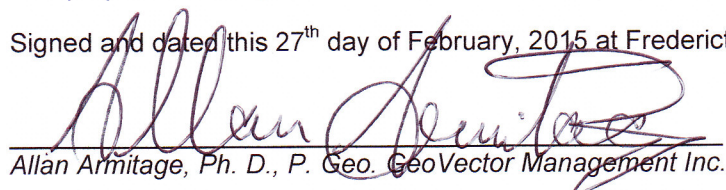 Signed and dated this 27th day of February, 2015 at Frederict
Allan Armitage
Allan Armitage, Ph. D., P. Geo. GeoVector Management Inc.